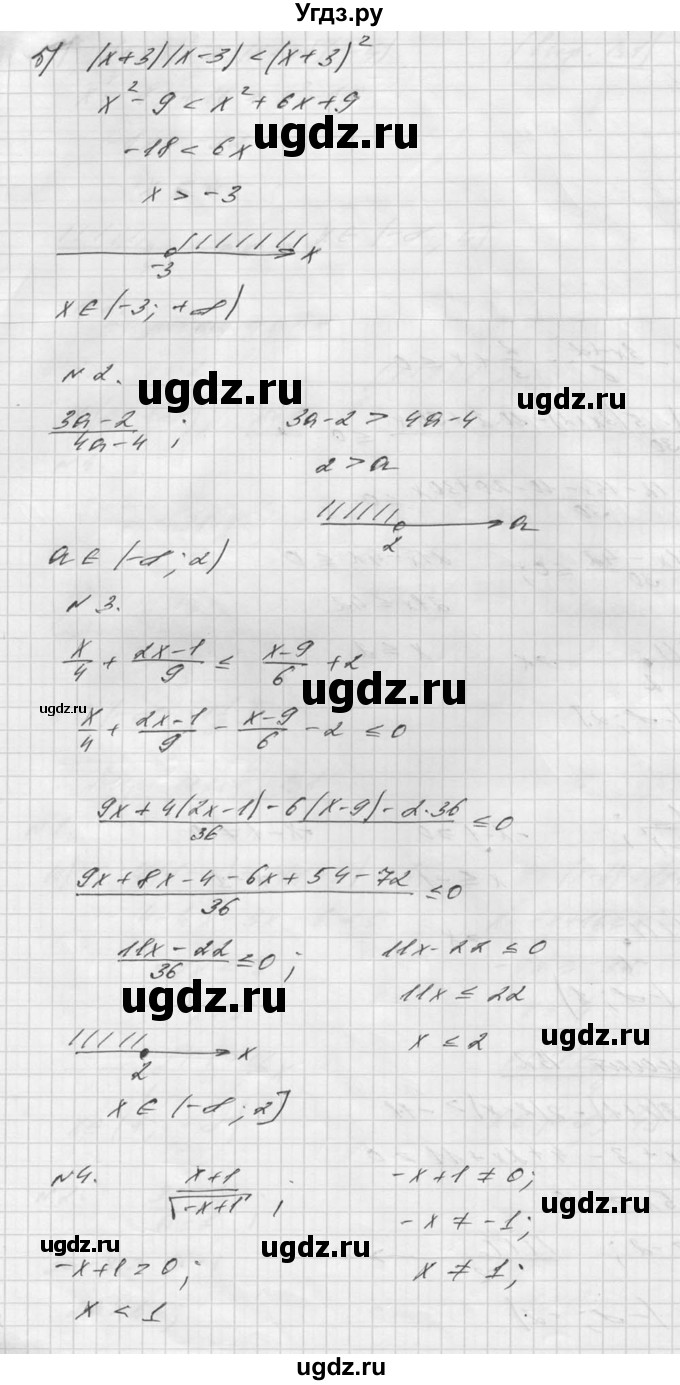 Угдз.ру
б) (x+3)(x-3) < (x+3)²
x² - 9 < x² + 6x + 9
ugdz.ru
-18 < 6x
x > -3
-3 x
x ∈ (-3; +∞)
N 2.
ugdz.ru
(3a-2)/(4a-4) ; 3a-2 > 4a-4
2 > a
2 a
a ∈ (-∞; 2)
N 3.
x/4 + (2x-1)/9 ≤ (x-9)/6 + 2
ugdz.ru
ugdz.ru
x/4 + (2x-1)/9 - (x-9)/6 - 2 ≤ 0
(9x + 4(2x-1) - 6(x-9) - 2·36)/36 ≤ 0
ugdz.ru
(9x + 8x - 4 - 6x + 54 - 72)/36 ≤ 0
(11x - 22)/36 ≤ 0 ; 11x - 22 ≤ 0
ugdz.ru
11x ≤ 22
2 x x ≤ 2
ugdz.ru
x ∈ (-∞; 2]
N4. (x+1)/√(-x+1) ; -x+1 ≠ 0;
ugdz.ru
-x ≠ -1;
ugdz.ru
ugdz.ru
-x+1 ≥ 0; x ≠ 1;
x < 1
ugdz.ru
ugdz.ru